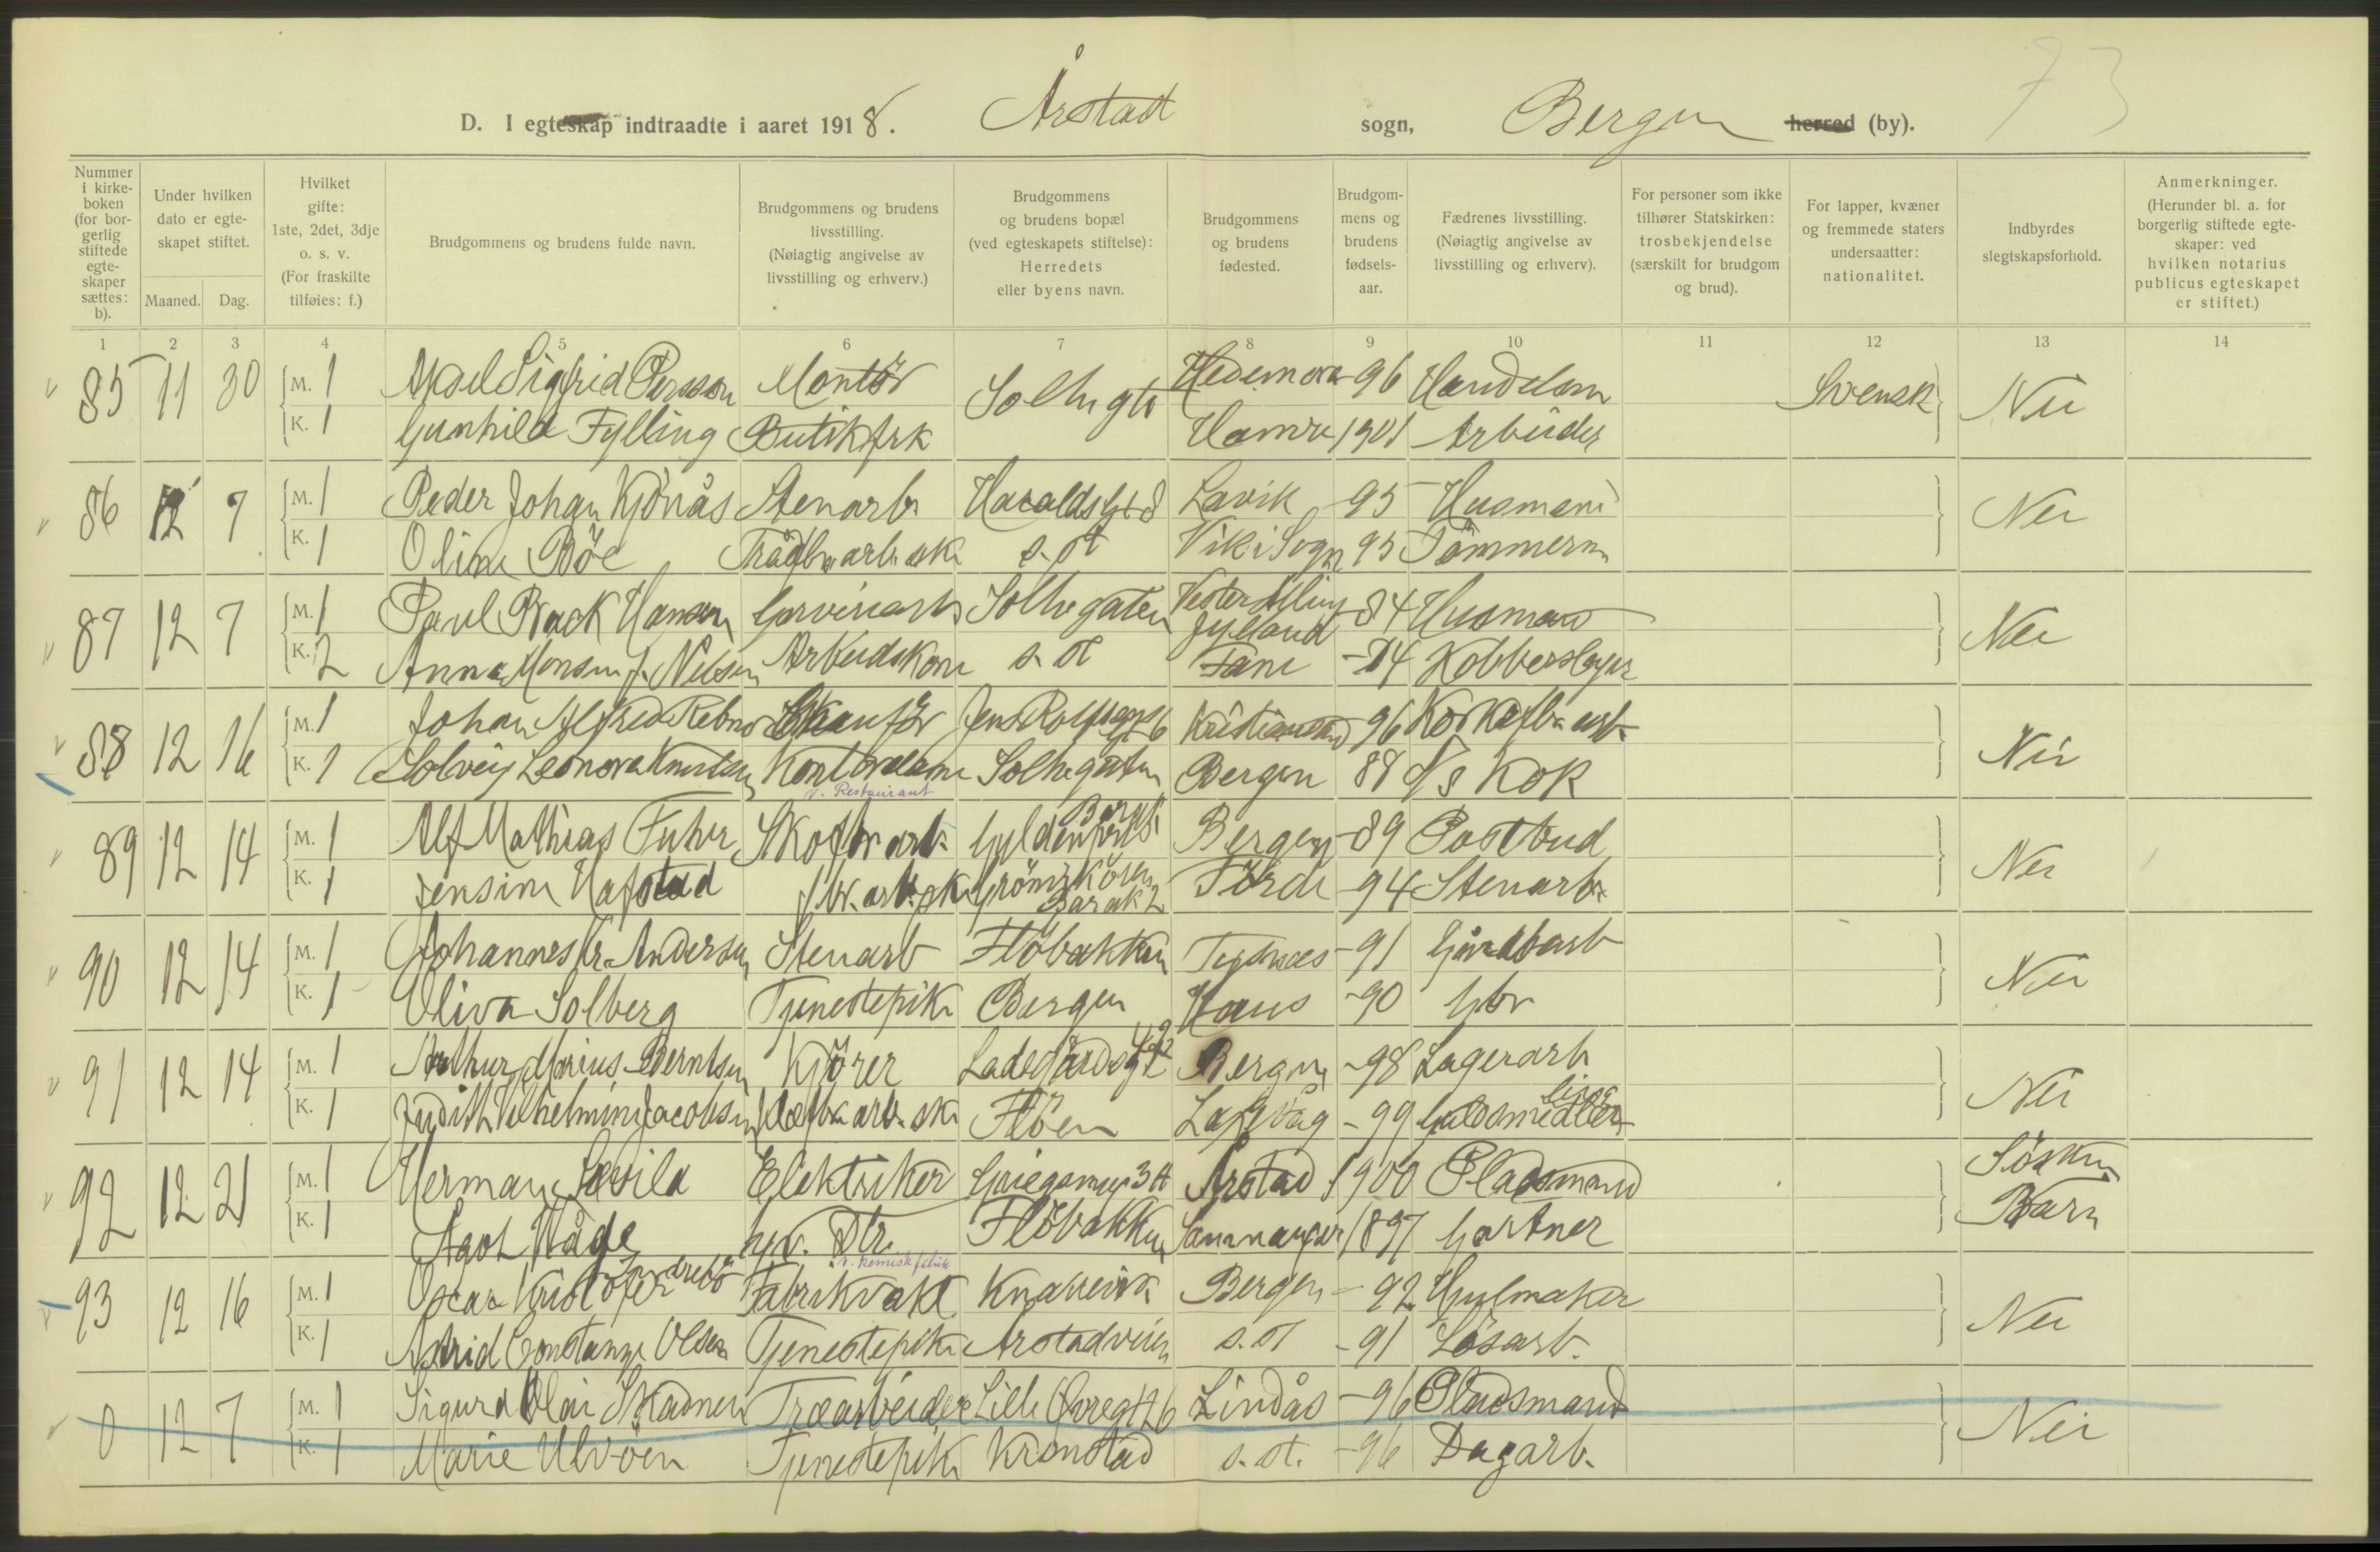 73
D. I egteskap indtraadte i aaret 1918. Årstad sogn, Bergen herred (by).
Nummer i kirke-boken (for bor-gerlig stiftede egte-skaper sættes: b).
Under hvilken dato er egte-skapet stiftet.
Maaned. Dag.
Hvilket gifte: 1ste, 2det, 3dje o. s. v. (For fraskilte tilføies: f.)
Brudgommens og brudens fulde navn.
Brudgommens og brudens livsstilling. (Nøiagtig angivelse av livsstilling og erhverv.)
Brudgommens og brudens bopæl (ved egteskapets stiftelse): Herredets eller byens navn.
Brudgommens og brudens fødested.
Brudgom-mens og brudens fødsels-aar.
Fædrenes livsstilling. (Nøiagtig angivelse av livsstilling og erhverv).
For personer som ikke tilhører Statskirken: trosbekjendelse (særskilt for brudgom og brud).
For lapper, kvæner og fremmede staters undersaatter: nationalitet.
Indbyrdes slegtskapsforhold.
Anmerkninger. (Herunder bl. a. for borgerlig stiftede egte-skaper: ved hvilken notarius publicus egteskapet er stiftet.)
1 2 3 4 5 6 7 8 9 10 11 12 13 14
85 11 30 M. 1 Axel Sigfrid Persson Montör Solhgt Hedemora -96 Handelsm Svensk Nei
K. 1 Gunhild Fylling Butikfrk Hamre 1901 Arbeider
86 12 7 M. 1 Peder Johan Kjönås Stenarb. Haraldsgt 8 Lavik -95 Husmand Nei
K. 1 Oline Böe Trådfbr arb.ske s. st Vik i Sogn 95 Tömmerm
87 12 7 M. 1 Paul Brack Hansen Garveriarb Solhegaten Vester Alling Jylland -84 Husmand Nei
K. 2 Anna Monsen f. Nilsen Arbeidskone s. st Fane -74 Kobberslager
88 12 16 M. 1 Johan Alfred Rebno Chauför Jens Rolfsgt 6 Kristiansund 96 Korkefbr arb. Nei
K. 1 Solveig Leonora Knutsen Kontordame Solhegaten Bergen 88 d/s Kok
v. Restaurant
89 12 14 M. 1 Alf Mathias Fuhr Skofbr arb. Gyldenpris Bergen -89 Postbud Nei
K. 1 Jensine Hafstad fbr. arb.ske Barak 2 Förde -94 Stenarb.
90 12 14 M. 1 Johannes Gr. Andersen Stenarb Flöbakken Tysnes -91 Gårdbarb Nei
K. 1 Oliva Solberg Tjenestepike Bergen Haus -90 Gbr
91 12 14 M. 1 Arthur Marius Berntsen Kjörer Ladegårdsgt Bergen -98 Lagerarb Nei
K. 1 Judith Vilhelmine Jacobsen arb.ske Flöen Laksevåg -99
92 12 21 M. 1 Herman Sævild Elektriker Griegsmyr 3 A Årstad 1900 Pladsmand Sösken
K. 1 Agot Våge hv. Dtr. Flöbakken Samnanger 1897 Gartner Barn
v. kemisk fabrik
93 12 16 M. 1 Oscar Kristofer Indrebö Fabrikvakt Knarvik Bergen -92 Hjulmaker Nei
K. 1 Astrid Constanze Olsen Tjenestepike Årstadveien s. st -91 Lösarb.
0 12 7 M. 1 Sigurd Olai Skadnes Træarbeider Lille Øvregt 26 Lindås -96 Pladsmand Nei
K. 1 Marie Ulvöen Tjenestepike Kronstad s. st. -96 Dagarb.